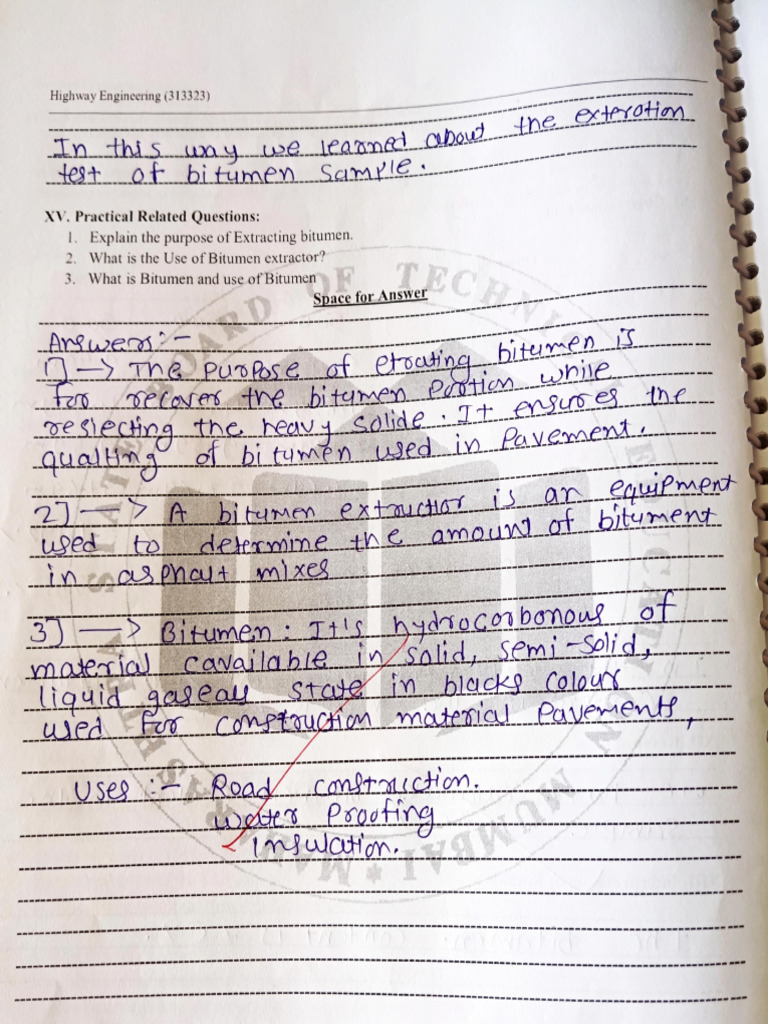 Highway Engineering (313323)
In this way we learned about the exteration
test of bitumen sample.
XV. Practical Related Questions:
1. Explain the purpose of Extracting bitumen.
2. What is the Use of Bitumen extractor?
3. What is Bitumen and use of Bitumen
Space for Answer
Answers:-
1] → The purpose of etrating bitumen is
for recover the bitumen portion while
reslecting the heavy solide. It ensures the
qualting of bitumen used in Pavement.
2] → A bitumen extructior is an equipment
used to determine the amount of bitument
in asphalt mixes
3] → Bitumen: It's hydrocorbonous of
material cavailable in solid, semi-solid,
liquid gaseous state in blacks colour
used for construction material Pavements,
Uses :- Road construction.
water Proofing
Insulation.
BOARD OF TECHNI
EDUCATI N MUMBAI * MAHARASHTRA STATE